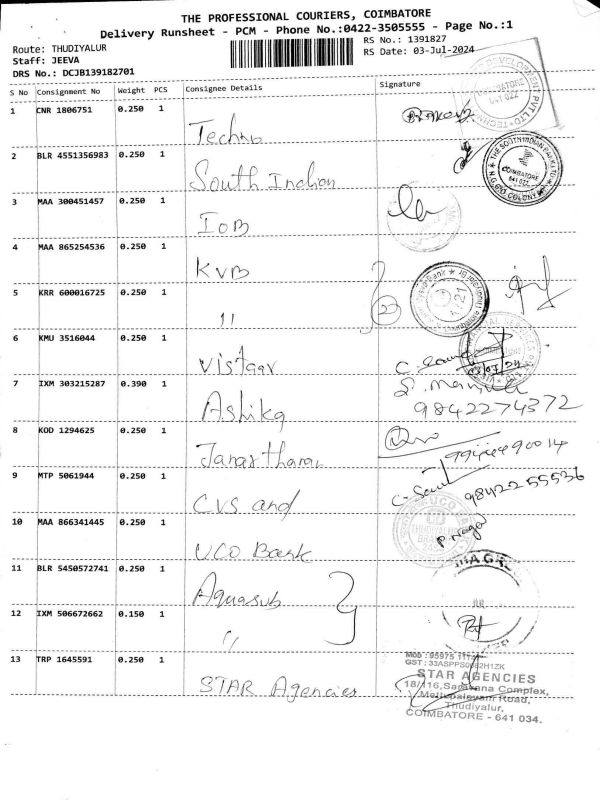 THE PROFESSIONAL COURIERS, COIMBATORE
Delivery Runsheet - PCM - Phone No.:0422-3505555 - Page No.:1
Route: THUDIYALUR
Staff: JEEVA
DRS No.: DCJB139182701
RS No.: 1391827
RS Date: 03-Jul-2024
S No Consignment No Weight PCS Consignee Details Signature
1 CNR 1806751 0.250 1 Techno
2 BLR 4551356983 0.250 1 South Indian
THE SOUTH INDIAN BANK LTD
COIMBATORE
641 022
3 MAA 300451457 0.250 1 IOB
4 MAA 865254536 0.250 1 KVB
5 KRR 600016725 0.250 1 11
2
6 KMU 3516044 0.250 1 Vistaar
03/07/24
7 IXM 303215287 0.390 1 Ashika
9842274372
8 KOD 1294625 0.250 1 Janarthanan
9 MTP 5061944 0.250 1 CVS and
98422 55536
10 MAA 866341445 0.250 1 UCO Bank
UCO BANK
11 BLR 5450572741 0.250 1 Aquasub
12 IXM 506672662 0.150 1 "
13 TRP 1645591 0.250 1 STAR Agencies
STAR AGENCIES
18/116, Saravana Complex,
Mettupalayam Road,
Thudiyalur,
COIMBATORE - 641 034.